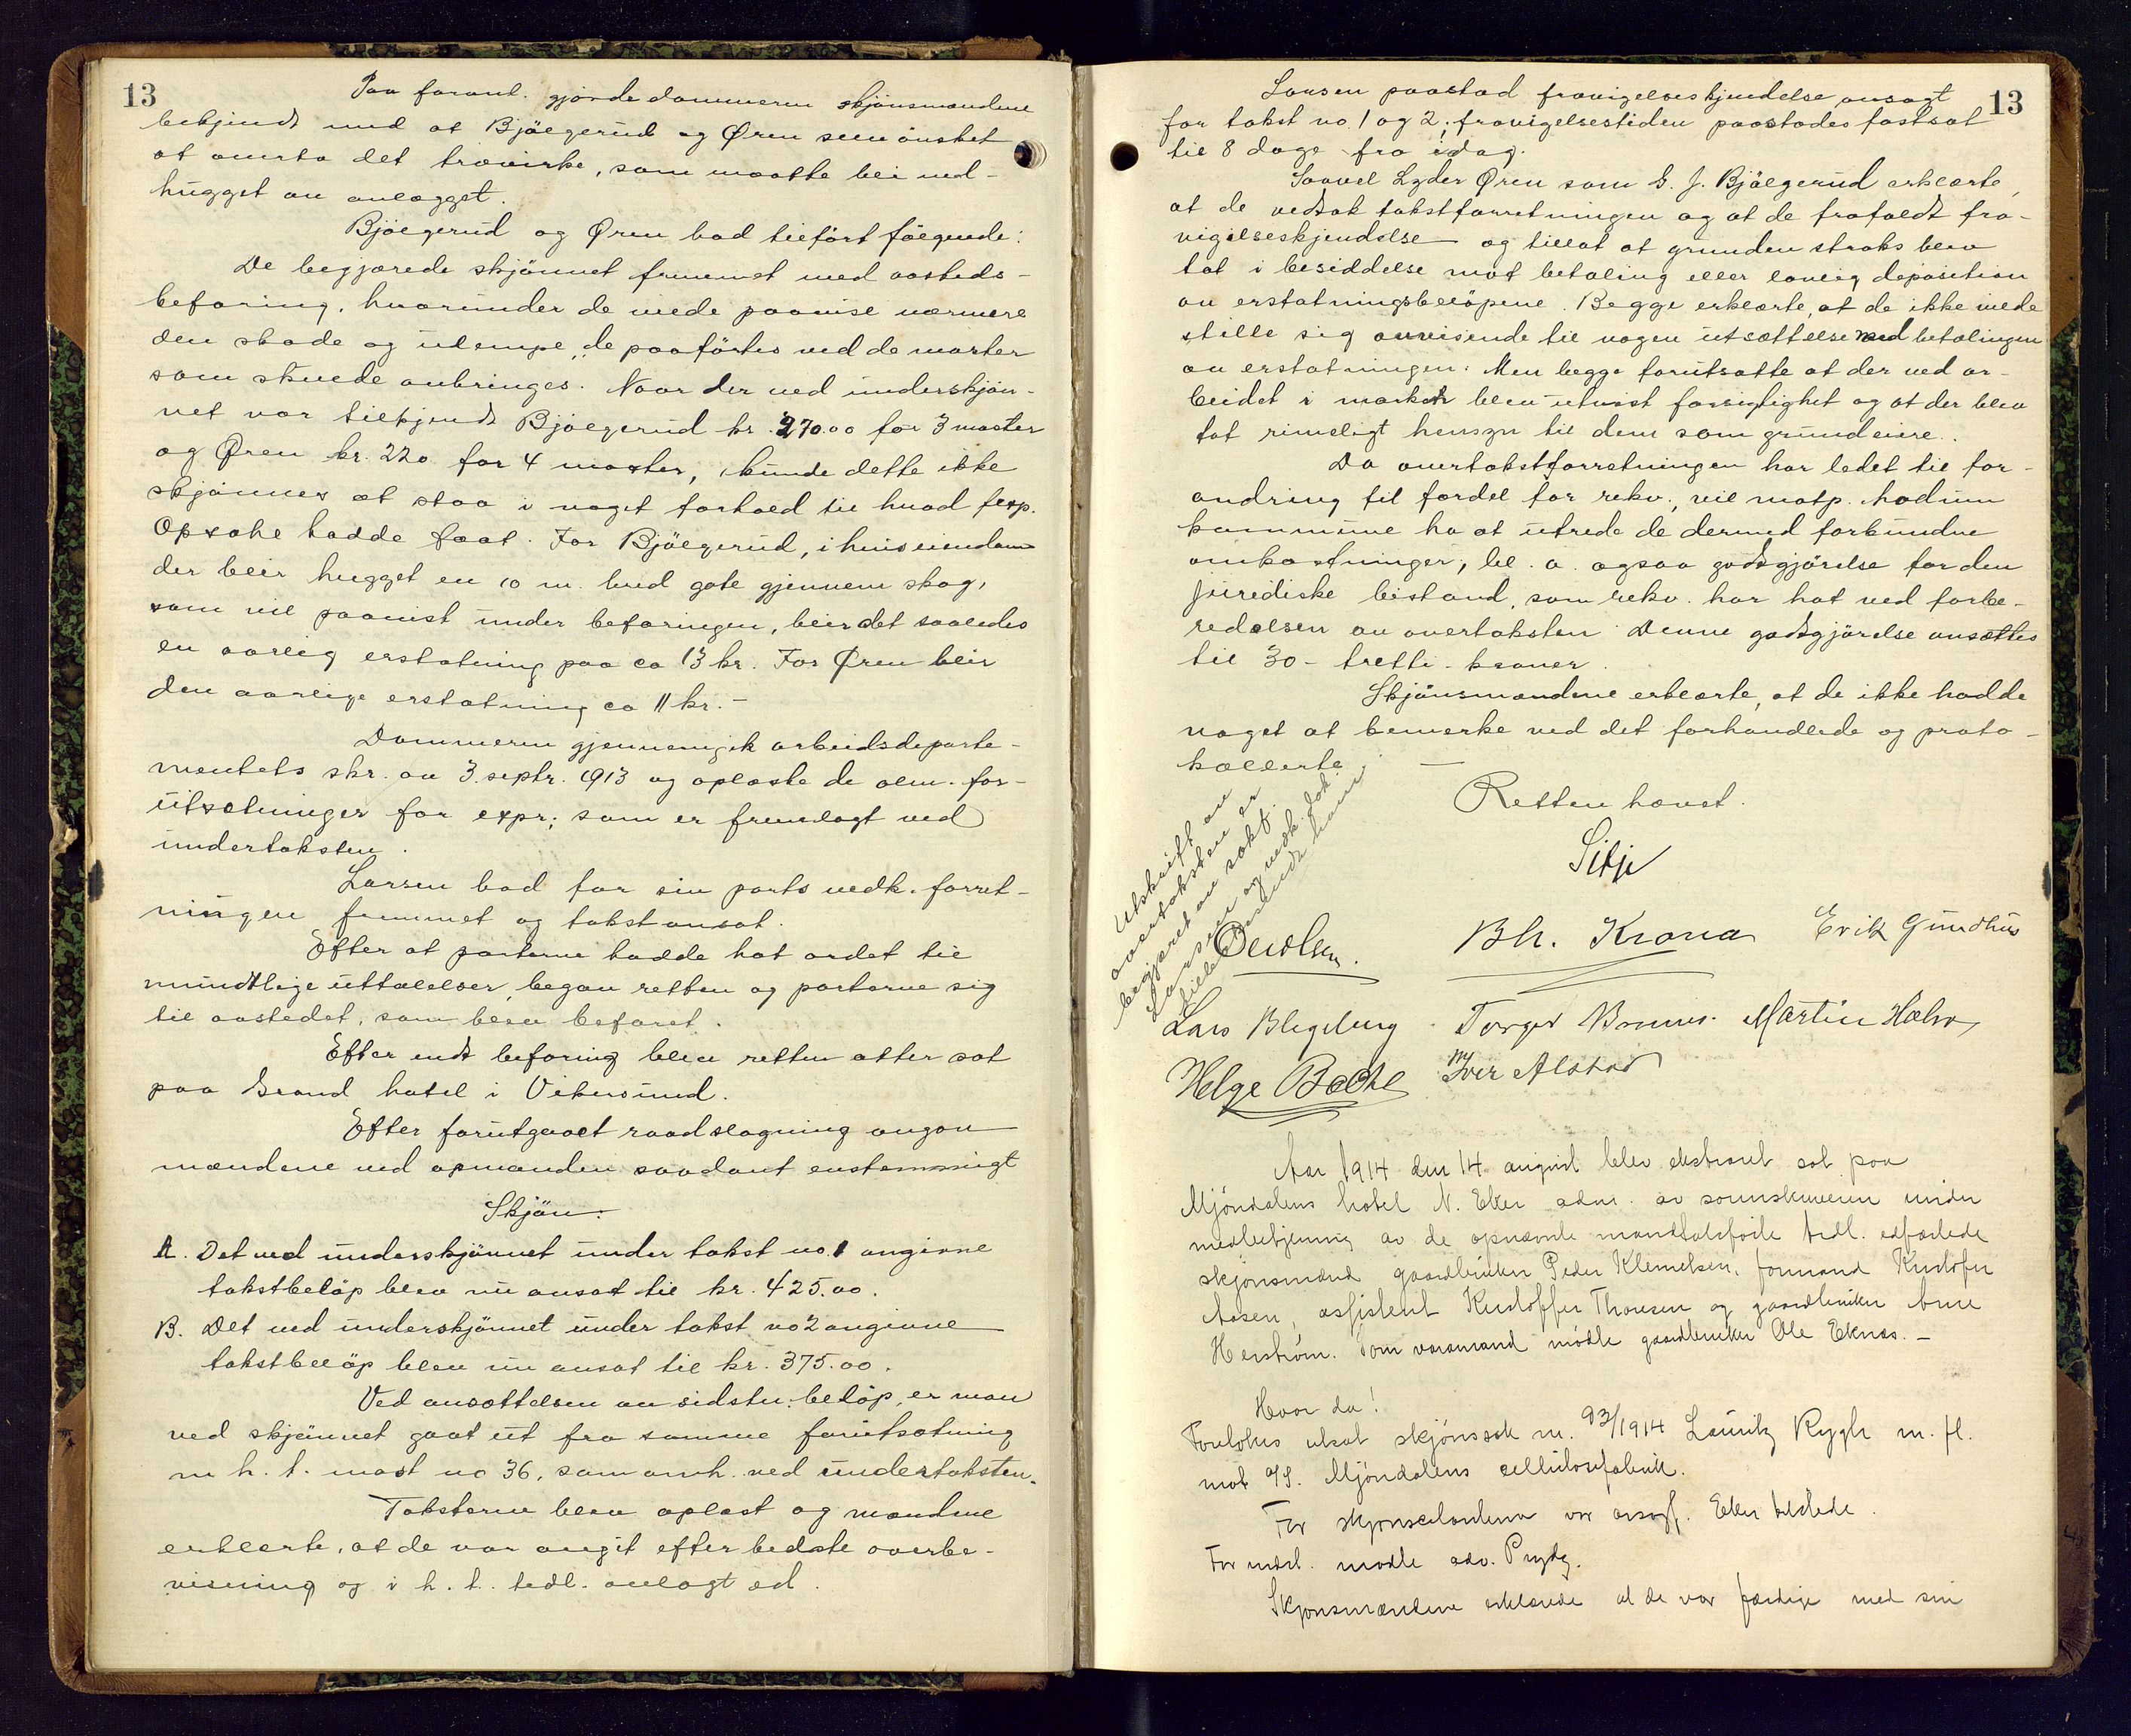 13
Paa foranl. gjorde dommeren skjønsmændene
bekjendt med at Bjølgerud og Øren selv ønsket
at overta det trævirke, som maatte bli ned-
hugget av anlægget.
Bjølgerud og Øren bad tilført følgende:
De begjærede skjønnet fremmet med aasteds-
befaring, hvorunder de vilde paavise nærmere
den skade og ulempe, de paaførtes ved de master
som skulde anbringes. Naar der ved underskjøn-
net var tilkjendt Bjølgerud kr. 270.00 for 3 master
og Øren kr. 220 for 4 master, kunde dette ikke
skjønnes at staa i noget forhold til hvad
Opsahl hadde faat. For Bjølgerud, i hvis eiendom
der blir hugget en 10 m. bred gate gjennem skog,
som vil paavist under befaringen, blir det saaledes
en aarlig erstatning paa ca 13 kr. For Øren blir
den aarlige erstatning ca 11 kr. -
Dommeren gjennemgik arbeidsdeparte-
mentets skr. av 3. septr. 1913 og oplæste de alm. for-
utsætninger for expr; som er fremlagt ved
undertaksten.
Larsen bad for sin parts vedk. forret-
ningen fremmet og takst ansat.
Efter at parterne hadde hat ordet til
mundtlige uttalelser, begav retten og parterne sig
til aastedet, som blev befaret.
Efter endt befaring blev retten atter sat
paa Grand hotel i Vikersund.
Efter forutgaaet raadslagning avgav
mændene ved opmanden saadant enstemmigt
Skjøn:
A. Det ved underskjønnet under takst no. 1 angivne
takstbeløp blev nu ansat til kr. 425.00.
B. Det ved underskjønnet under takst no 2 angivne
takstbeløp blev nu ansat til kr. 375.00.
Ved ansættelsen av sidstn. beløp, er man
ved skjønnet gaat ut fra samme forutsætning
m. h. t. mast no 36, som omh. ved undertaksten.
Taksterne blev oplæst og mændene
erklærte, at de var avgit efter bedste overbe-
visning og i h. t. tidl. avlagt ed.
13
Larsen paastod fravigelseskjendelse avsagt
for takst no. 1 og 2; fravigelsestiden paastodes fastsat
til 8 dage fra idag.
Saavel Lyder Øren som G. J. Bjølgerud erklærte,
at de vedtok takstforretningen og at de frafaldt fra-
vigelseskjendelse og tillot at grunden straks blev
tat i besiddelse mot betaling eller lovlig deposition
av erstatningsbeløpene. Begge erklærte, at de ikke vilde
stille sig avvisende til nogen utsættelse med betalingen
av erstatningen. Men begge forutsatte at der ved ar-
beidet i marken blev utvist forsigtighet og at der blev
tat rimeligt hensyn til dem som grundeiere.
Da overtakstforretningen har ledet til for-
andring til fordel for rekv., vil motp. Modum
kommune ha at utrede de dermed forbundne
omkostninger, bl. a. ogsaa godtgjørelse for den
juridiske bistand, som rekv. har hat ved forbe-
redelsen av overtaksten. Denne godtgjørelse ansættes
til 30 - tretti - kroner.
Skjønsmændene erklærte, at de ikke hadde
noget at bemerke ved det forhandlede og proto-
kollerte. —
Retten hævet.
Utskrift av
overtaksten er
begjæret av sakf.
Larsen og vedk. dok.
Sitje
Bh. Krona Erik Gundhus
Lars Blegeberg Torger Martin Holm
Helge Bache Iver Alstad
Aar 1914 den 14 august blev ekstraret sat paa
Mjøndalens hotel N. Eker adm. av sorenskriveren under
medbetjening av de opnævnte mandtalsførte tidl. edfæstede
skjønsmænd gaardbruker Peder Klemetsen, formand Kristofer
Aasen, assistent Kristoffer Thoresen og gaardbruker Arne
Herstrøm. Som varamand mødte gaardbruker Ole Eknes. -
Hvor da!
Foretokes utsat skjønssak nr. 93/1914 Lauritz Rygh m. fl.
mot A/S. Mjøndalens cellulosefabrik.
For skjønssakerne var orsagf. Eker tilstede.
For indst. mødte adv. Prydz.
Skjønsmændene erklærede at de var færdige med sin